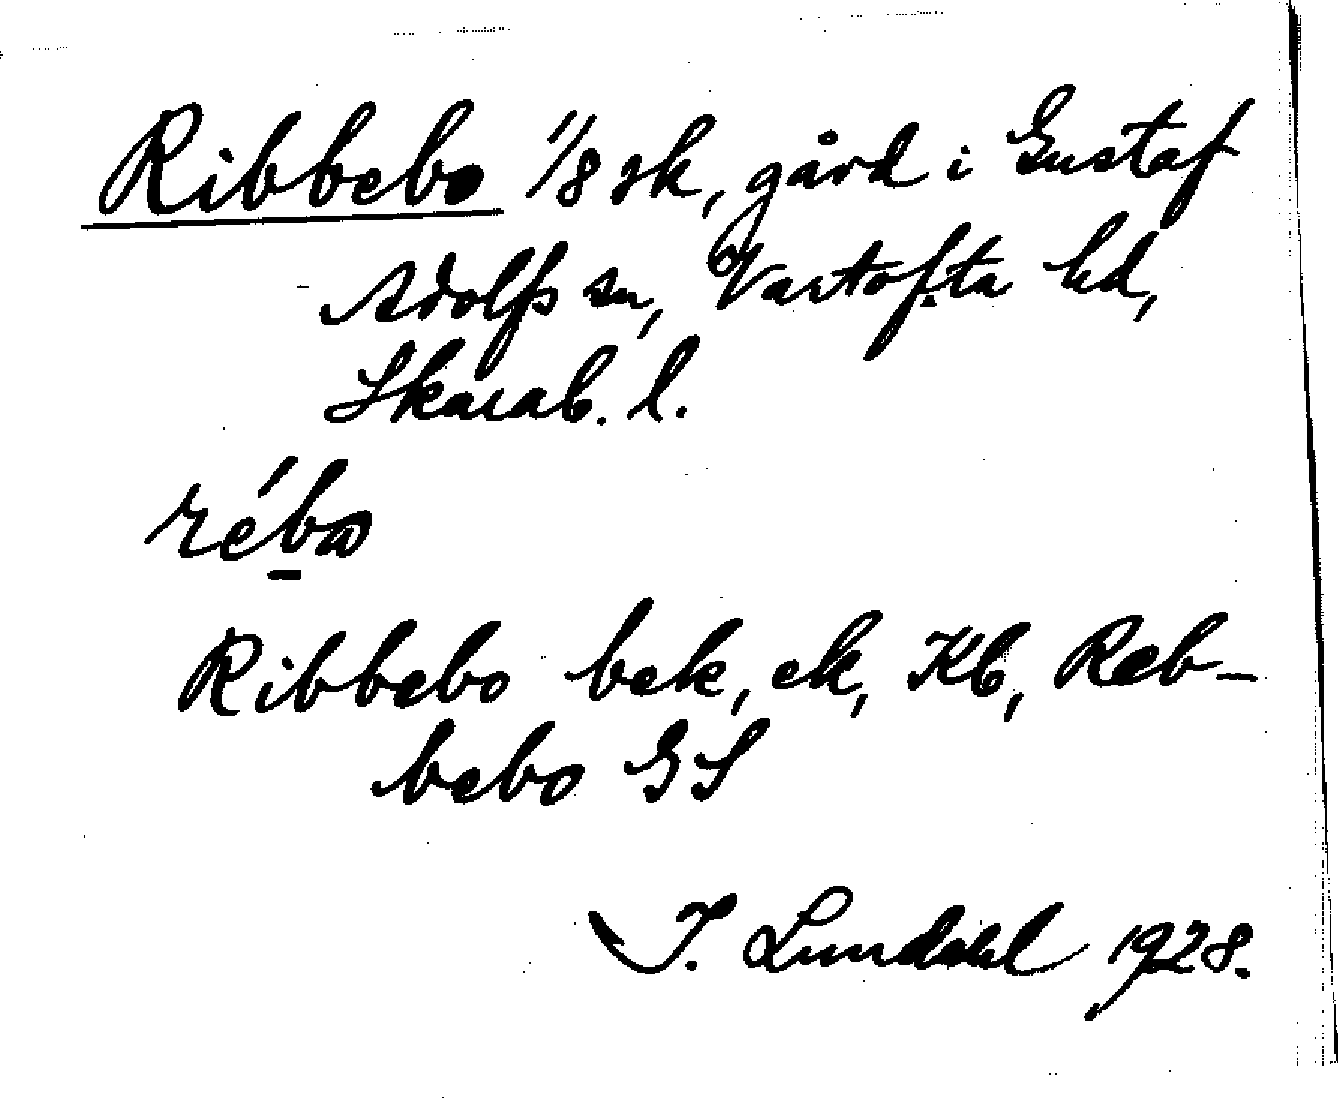 Ribbebo 1/8 sk, gård i Gustaf
Adolfs sn, Vartofta hd,
Skarab. l.
rébω
Ribbebo bek, ek, Kb, Reb-
bebo GS
I. Lundahl 1928.